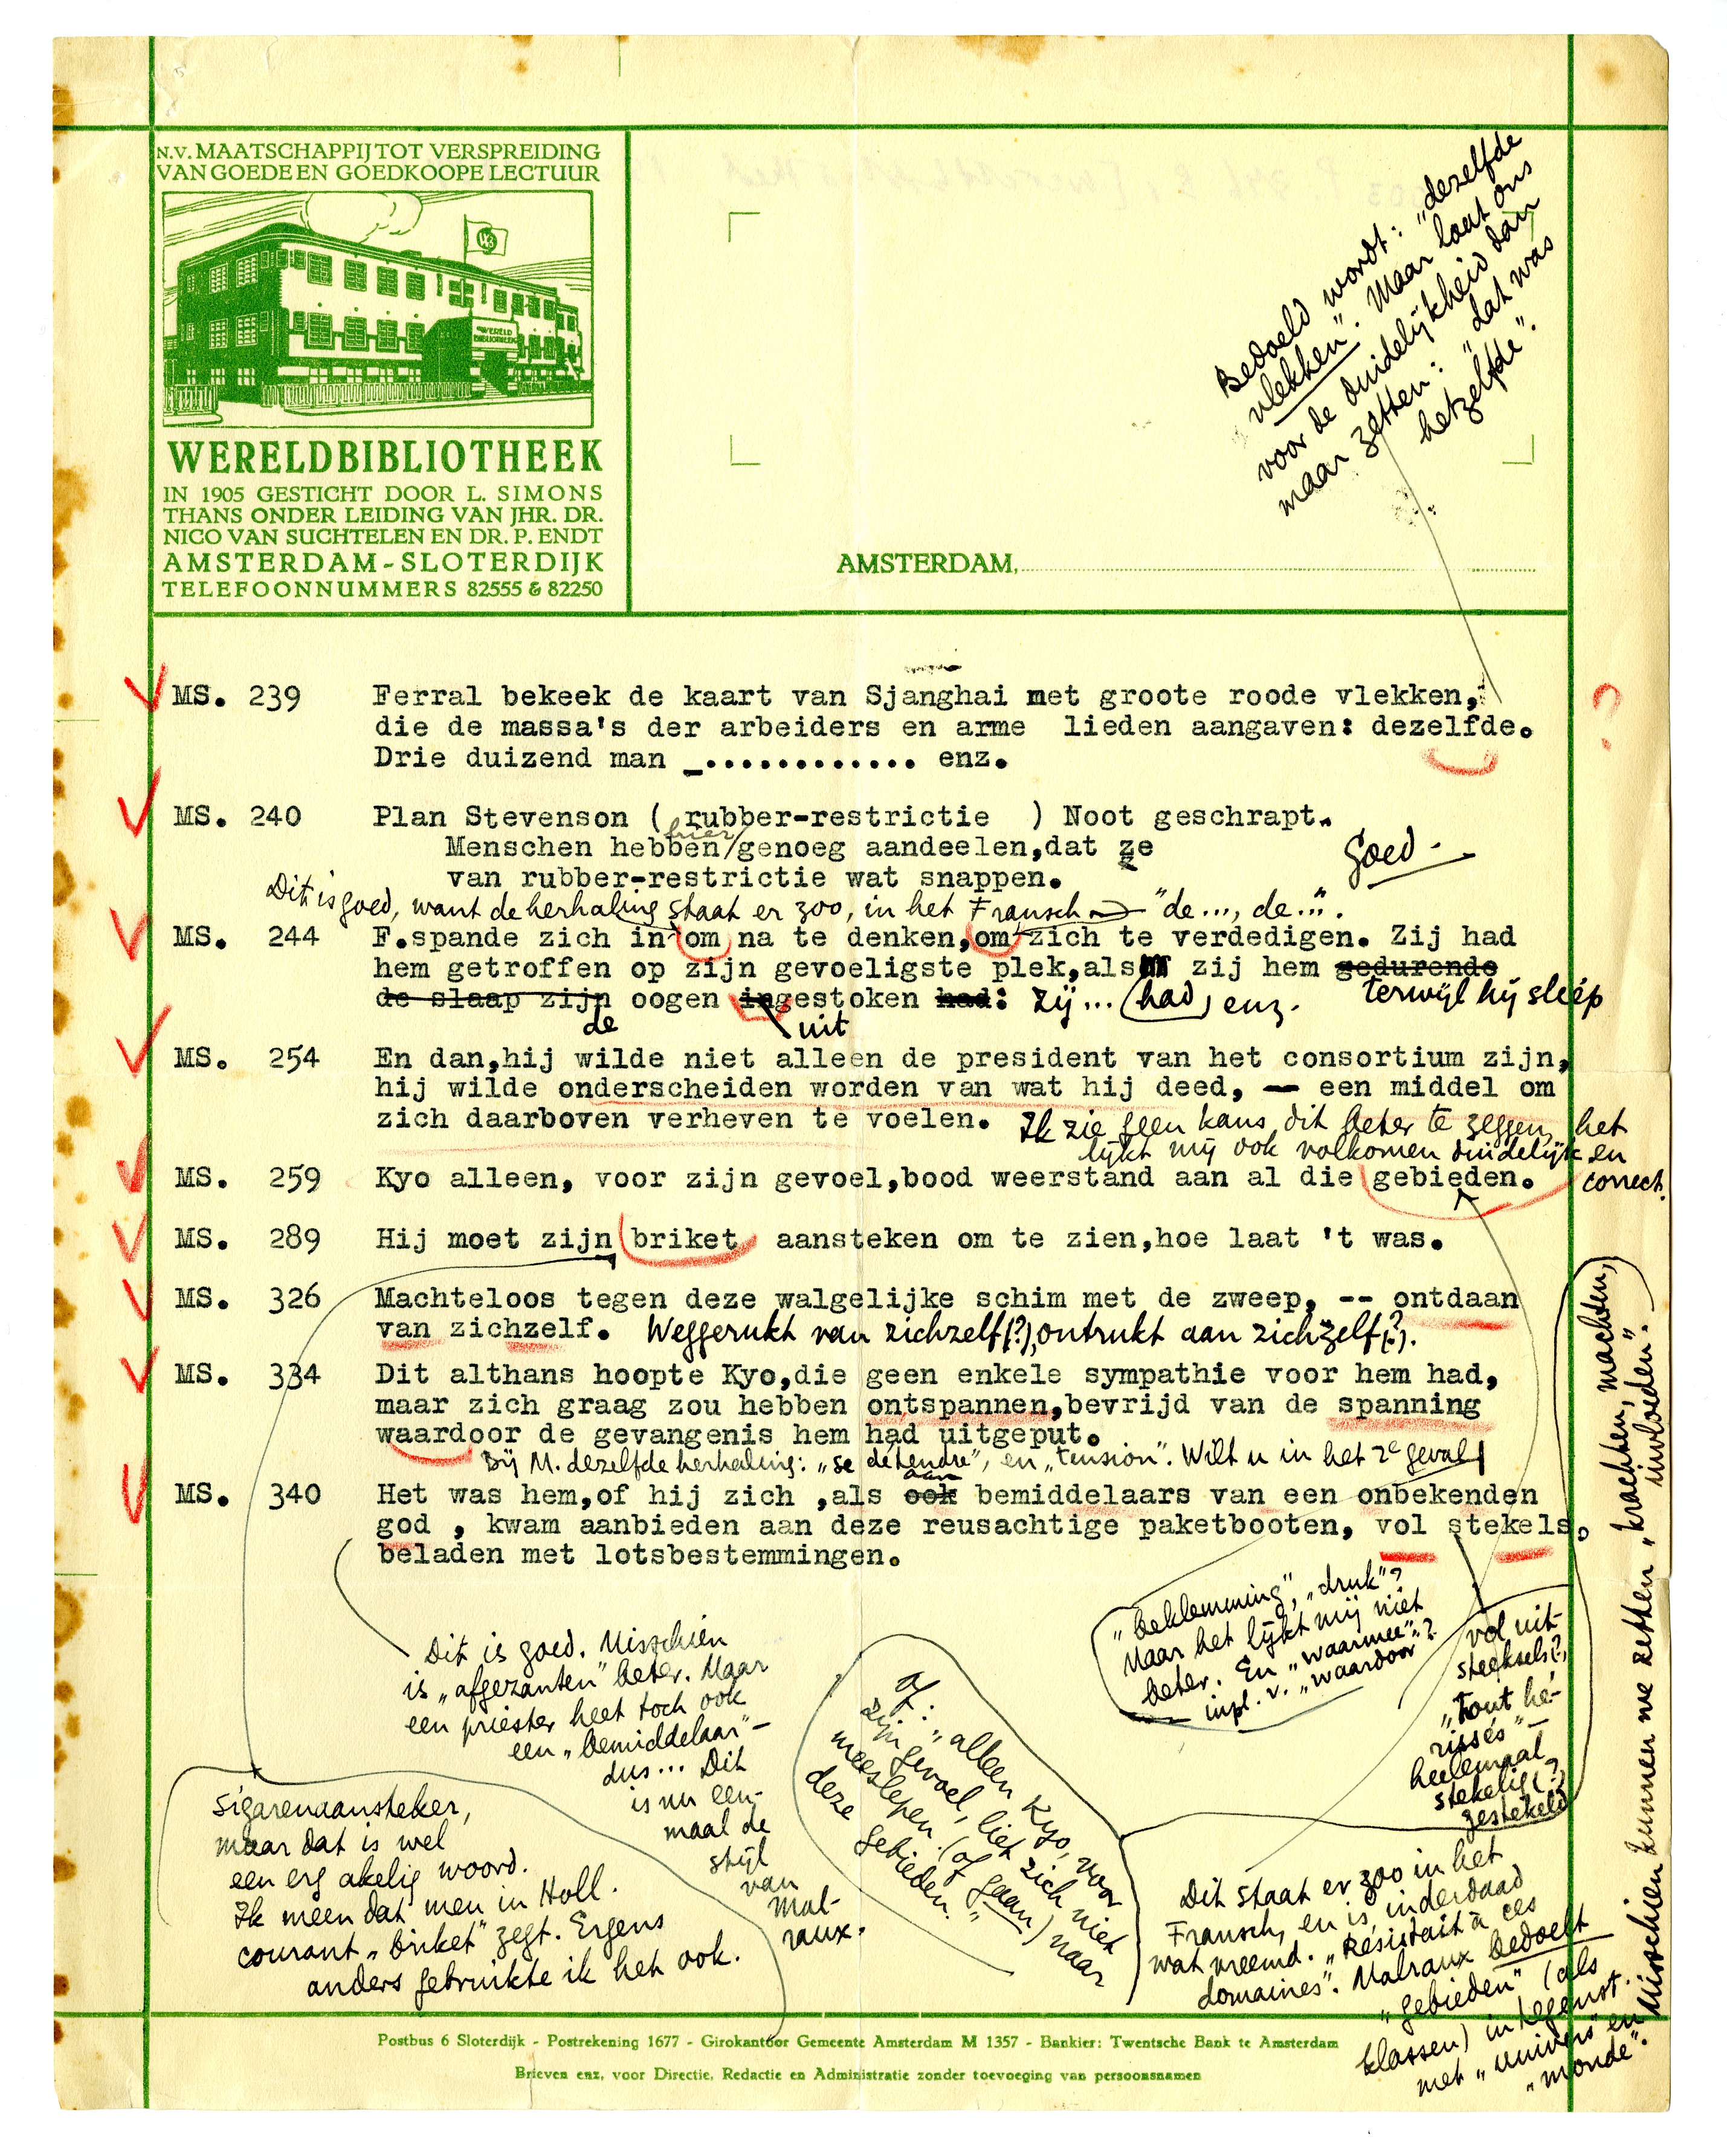 N.V. MAATSCHAPPIJ TOT VERSPREIDING
VAN GOEDE EN GOEDKOOPE LECTUUR
WERELD
BIBLIOTHEEK
WB
WERELDBIBLIOTHEEK
IN 1905 GESTICHT DOOR L. SIMONS
THANS ONDER LEIDING VAN JHR. DR.
NICO VAN SUCHTELEN EN DR. P. ENDT
AMSTERDAM - SLOTERDIJK
TELEFOONNUMMERS 82555 & 82250
AMSTERDAM,
Bedoeld wordt: "dezelfde
vlekken". Maar laat ons
voor de duidelijkheid dan
maar zetten: "dat was
hetzelfde".
MS. 239 Ferral bekeek de kaart van Sjanghai met groote roode vlekken,
die de massa's der arbeiders en arme lieden aangaven: dezelfde.
?
Drie duizend man _............. enz.
MS. 240 Plan Stevenson ( rubber-restrictie ) Noot geschrapt.
hier
Menschen hebben/genoeg aandeelen,dat ze
van rubber-restrictie wat snappen.
Goed.
Dit is goed, want de herhaling staat er zoo, in het Fransch "de..., de...".
MS. 244 F.spande zich in om na te denken,om zich te verdedigen. Zij had
hem getroffen op zijn gevoeligste plek,als zij hem gedurende
terwijl hij sliep
de slaap zijn oogen ingestoken had: zij... had, enz.
de uit
MS. 254 En dan,hij wilde niet alleen de president van het consortium zijn,
hij wilde onderscheiden worden van wat hij deed, — een middel om
zich daarboven verheven te voelen. Ik zie geen kans dit beter te zeggen, het
lijkt mij ook volkomen duidelijk en
correct.
MS. 259 Kyo alleen, voor zijn gevoel,bood weerstand aan al die gebieden.
MS. 289 Hij moet zijn briket aansteken om te zien,hoe laat 't was.
MS. 326 Machteloos tegen deze walgelijke schim met de zweep, -- ontdaan
van zichzelf. Weggerukt van zichzelf(?), ontrukt aan zichzelf(?).
MS. 334 Dit althans hoopte Kyo,die geen enkele sympathie voor hem had,
maar zich graag zou hebben ontspannen,bevrijd van de spanning
waardoor de gevangenis hem had uitgeput.
Bij M. dezelfde herhaling: „se détendre", en „tension". Wilt u in het 2e geval
aan
MS. 340 Het was hem,of hij zich ,als ook bemiddelaars van een onbekenden
god , kwam aanbieden aan deze reusachtige paketbooten, vol stekels,
beladen met lotsbestemmingen.
"beklemming", „druk"?
Maar het lijkt mij niet
beter. En „waarmee"?
inpl. v. „waardoor"
vol uit-
steeksels?,
„Tout hé-
rissés" —
heelemaal
stekelig(?),
gestekeld
Dit is goed. Misschien
is „afgezanten" beter. Maar
een priester heet toch ook
een „bemiddelaar" —
dus... Dit
is nu een-
maal de
stijl
van
Mal-
raux.
Sigarenaansteker,
maar dat is wel
een erg akelig woord.
Ik meen dat men in Holl.
courant „briket" zegt. Ergens
anders gebruikte ik het ook.
Of: „alleen Kyo, voor
zijn gevoel, liet zich niet
meeslepen (of gaan) naar
deze gebieden."
Dit staat er zoo in het
Fransch, en is inderdaad
wat vreemd. „Résistait à ces
domaines". Malraux bedoelt
„gebieden" (als
klassen) in tegenst.
met „univers" en
„monde".
Misschien kunnen we zetten „krachten, machten,
invloeden".
Postbus 6 Sloterdijk - Postrekening 1677 - Girokantoor Gemeente Amsterdam M 1357 - Bankier: Twentsche Bank te Amsterdam
Brieven enz, voor Directie, Redactie en Administratie zonder toevoeging van persoonsnamen